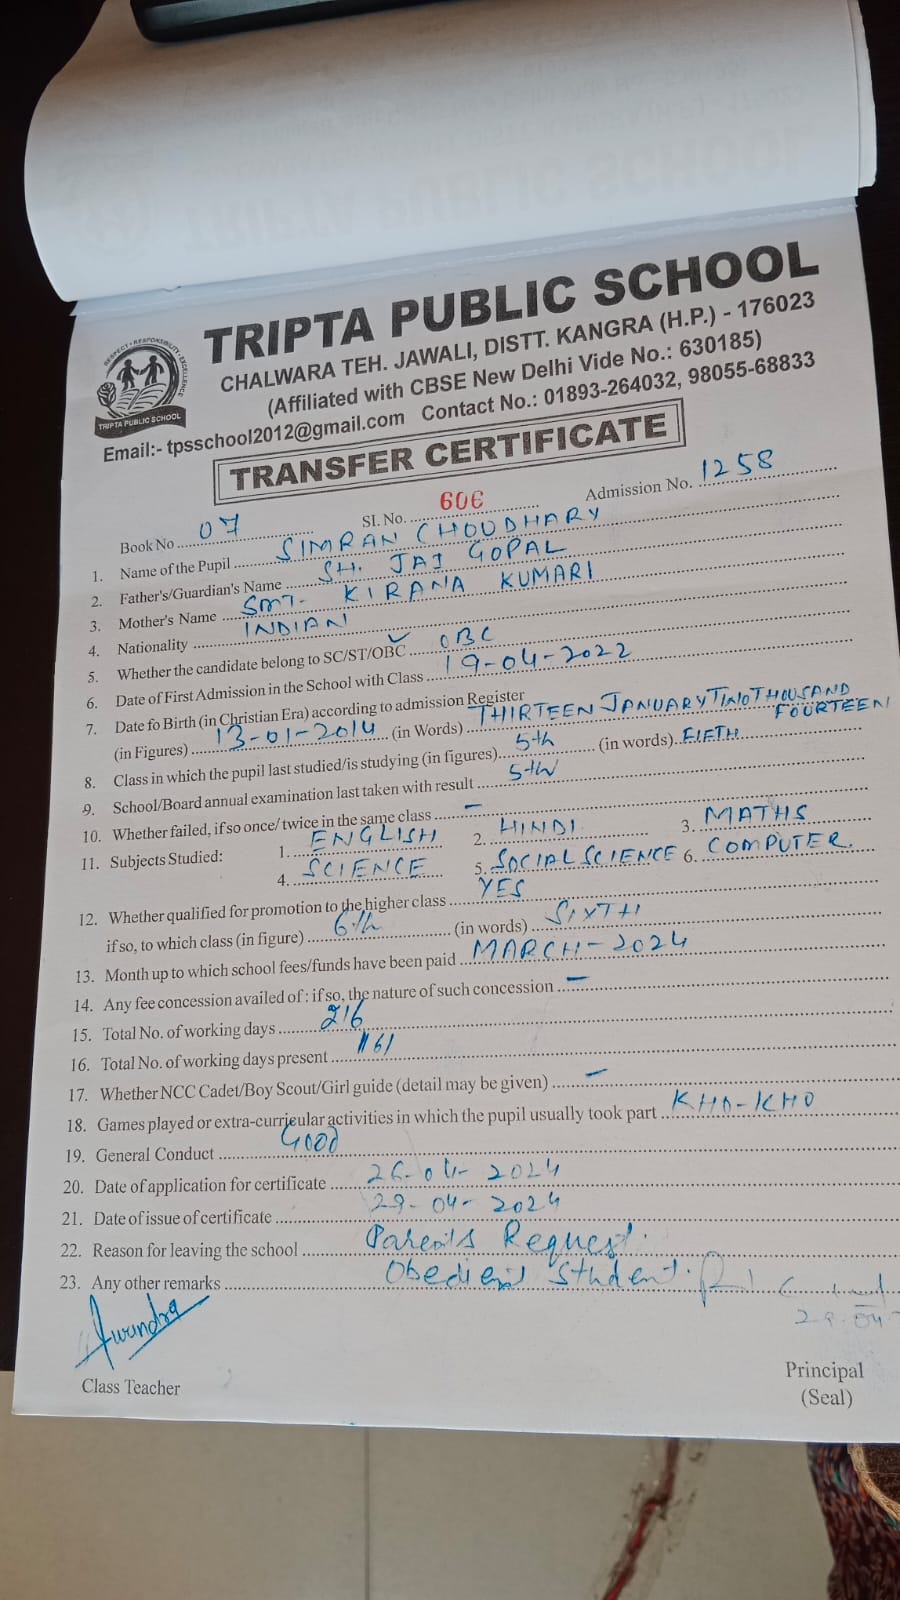 TRIPTA PUBLIC SCHOOL
CHALWARA TEH. JAWALI, DISTT. KANGRA (H.P.) - 176023
(Affiliated with CBSE New Delhi Vide No.: 630185)
RESPECT • RESPONSIBILITY • EXCELLENCE
TRIPTA PUBLIC SCHOOL
Email:- tpsschool2012@gmail.com Contact No.: 01893-264032, 98055-68833
TRANSFER CERTIFICATE
Book No 07 SI. No. 606 Admission No. 1258
1. Name of the Pupil SIMRAN CHOUDHARY
2. Father's/Guardian's Name SH. JAI GOPAL
3. Mother's Name SMT. KIRANA KUMARI
4. Nationality INDIAN
5. Whether the candidate belong to SC/ST/OBC OBC
6. Date of First Admission in the School with Class 19-04-2022
7. Date fo Birth (in Christian Era) according to admission Register
(in Figures) 13-01-2014 (in Words) THIRTEEN JANUARY TWO THOUSAND
FOURTEEN
8. Class in which the pupil last studied/is studying (in figures) 5th (in words) FIFTH
9. School/Board annual examination last taken with result 5th
10. Whether failed, if so once/ twice in the same class –
11. Subjects Studied: 1. ENGLISH 2. HINDI 3. MATHS
4. SCIENCE 5. SOCIAL SCIENCE 6. COMPUTER.
12. Whether qualified for promotion to the higher class YES
if so, to which class (in figure) 6th (in words) SIXTH
13. Month up to which school fees/funds have been paid MARCH-2024
14. Any fee concession availed of : if so, the nature of such concession –
15. Total No. of working days 216
16. Total No. of working days present
17. Whether NCC Cadet/Boy Scout/Girl guide (detail may be given) –
18. Games played or extra-curricular activities in which the pupil usually took part KHO-KHO
19. General Conduct Good
20. Date of application for certificate 26-04-2024
21. Date of issue of certificate 29-04-2024
22. Reason for leaving the school Parents Request.
23. Any other remarks Obedient Student.
29.04
Class Teacher
Principal
(Seal)